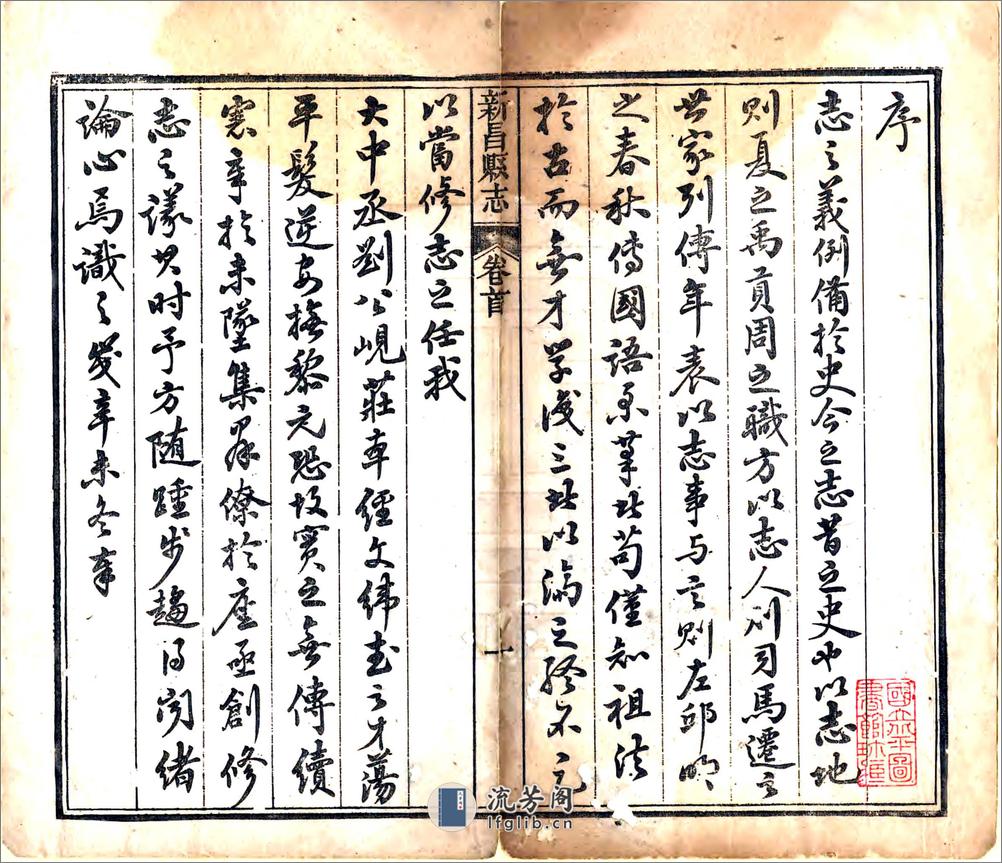 序
志之義例備於史今之志昔之史也以志地
則夏之禹貢周之職方以志人則司馬遷之
世家列傳年表以志事与言則左邱明
之春秋傳國語系筆此苟僅知祖法
於古而無才學識三者以濟之終不足
新昌縣志
卷首
一
以當修志之任我
大中丞劉公峴莊本經文緯武之才蕩
平髮逆安撫黎元恐故實之無傳續
寒辛於未墜集羣僚於座亟創修
志之議其时予方随踵步趨得闻緒
論心焉識之歲辛未冬奉
國立北平圖書館珍藏
流芳阁
lfglib.cn